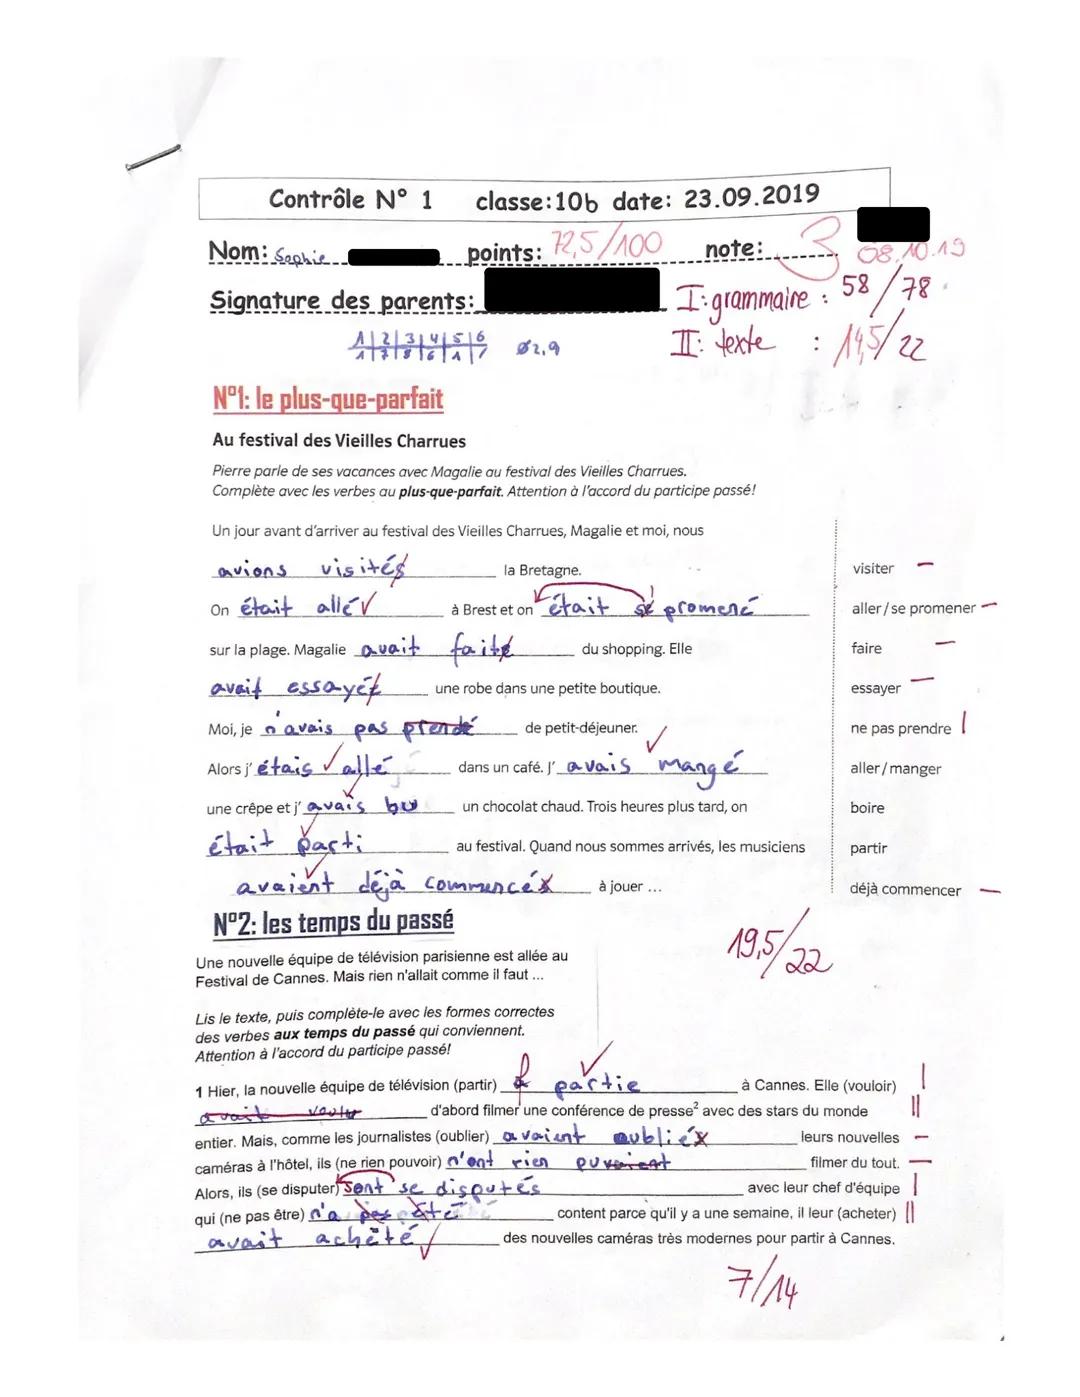 Contrôle N° 1 classe:10b date: 23.09.2019
Nom: Sophie points: 72,5/100 note: 3 08.10.19
Signature des parents: I: grammaire : 58/78
1 2 3 4 5 6 Ø2,9 II: texte : 14,5/22
1 7 8 6 1 /
N°1: le plus-que-parfait
Au festival des Vieilles Charrues
Pierre parle de ses vacances avec Magalie au festival des Vieilles Charrues.
Complète avec les verbes au plus-que-parfait. Attention à l'accord du participe passé!
Un jour avant d'arriver au festival des Vieilles Charrues, Magalie et moi, nous
avions visités la Bretagne. visiter –
On était allé √ à Brest et on était se promené aller/se promener –
sur la plage. Magalie avait faite du shopping. Elle faire –
avait essayée une robe dans une petite boutique. essayer –
Moi, je n'avais pas prendé de petit-déjeuner. ne pas prendre |
Alors j'étais √ allé dans un café. J'avais mangé √ aller/manger
une crêpe et j'avais bu √ un chocolat chaud. Trois heures plus tard, on boire
était parti √ au festival. Quand nous sommes arrivés, les musiciens partir
avaient déjà commencés √ à jouer ... déjà commencer –
N°2: les temps du passé 19,5/22
Une nouvelle équipe de télévision parisienne est allée au
Festival de Cannes. Mais rien n'allait comme il faut ...
Lis le texte, puis complète-le avec les formes correctes
des verbes aux temps du passé qui conviennent.
Attention à l'accord du participe passé!
1 Hier, la nouvelle équipe de télévision (partir) partie √ à Cannes. Elle (vouloir) |
avait voulu d'abord filmer une conférence de presse² avec des stars du monde ||
entier. Mais, comme les journalistes (oublier) avaient oubliés leurs nouvelles –
caméras à l'hôtel, ils (ne rien pouvoir) n'ont rien puvaient filmer du tout. –
Alors, ils (se disputer) sont se disputés avec leur chef d'équipe |
qui (ne pas être) n'a pas été content parce qu'il y a une semaine, il leur (acheter) ||
avait achèté √ des nouvelles caméras très modernes pour partir à Cannes.
7/14